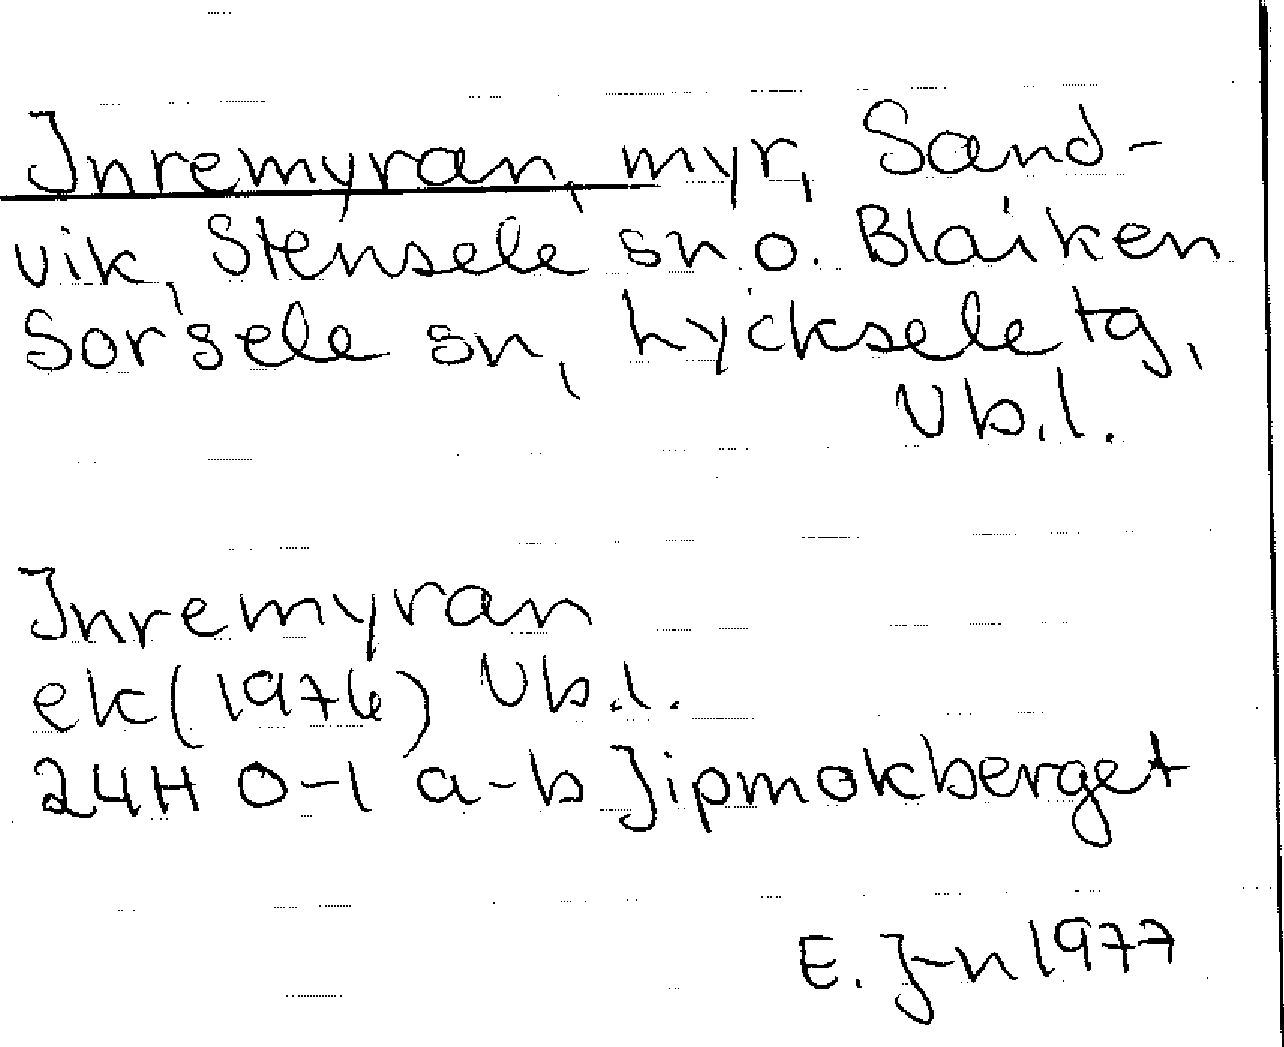 Inremyran, myr, Sand-
vik, Stensele sn o. Blaiken
Sorsele sn, Lycksele tg,
Vb.l.
Inremyran
ek (1976) Vb.l.
24H 0-1 a-b Jipmokberget
E. J-n 1977